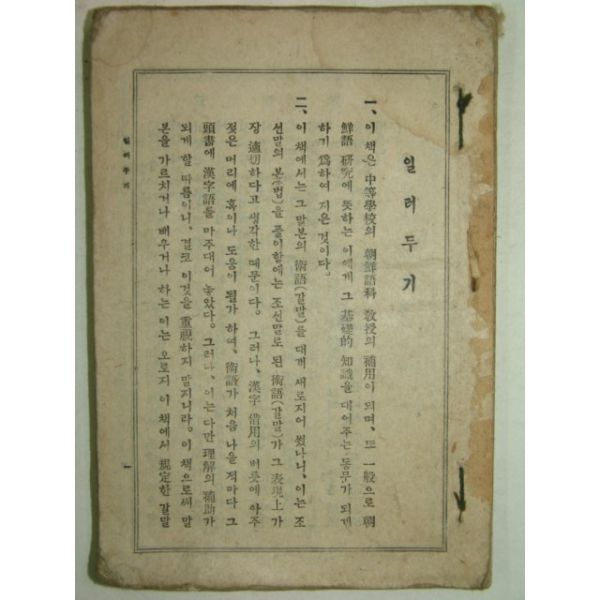 일러두기
一、이 책은 中等學校의 朝鮮語科 敎授의 補用이 되며、또 一般으로 朝
鮮語 硏究에 뜻하는 이에게 그 基礎的 知識을 대어주는 동무가 되게
하기 爲하여 지은 것이다。
二、이 책에서는 그 말본의 術語(갈말)를 대개 새로지어 썼나니、이는 조
선말의 본(法)을 풀이함에는 조선말로 된 術語(갈말)가 그 表現上 가
장 適切하다고 생각한 때문이다。그러나、漢字 借用의 버릇에 아주
젖은 머리에 혹이나 도움이 될가 하여、術語가 처음 나올 적마다 그
頭書에 漢字語를 마주대어 놓았다。그러나、이는 다만 理解의 補助가
되게 할 따름이니、결코 이것을 重視하지 말지니라。이 책으로써 말
본을 가르치거나 배우거나 하는 이는 오로지 이 책에서 規定한 갈말
일러두기
一